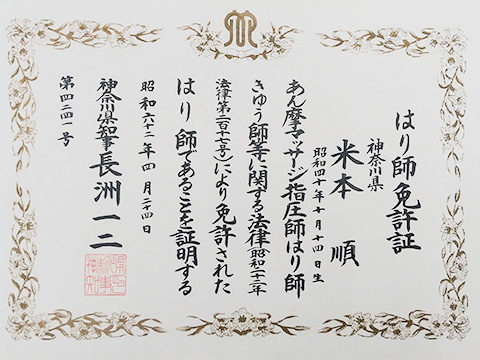 はり師免許証
神奈川県
米本 順
昭和四十年十月十四日生
あん摩マッサージ指圧師はり師
きゆう師等に関する法律(昭和二十二年
法律第二百十七号)により免許された
はり師であることを証明する
昭和六十二年四月二十四日
神奈川県知事 長洲一二
第四二四一号